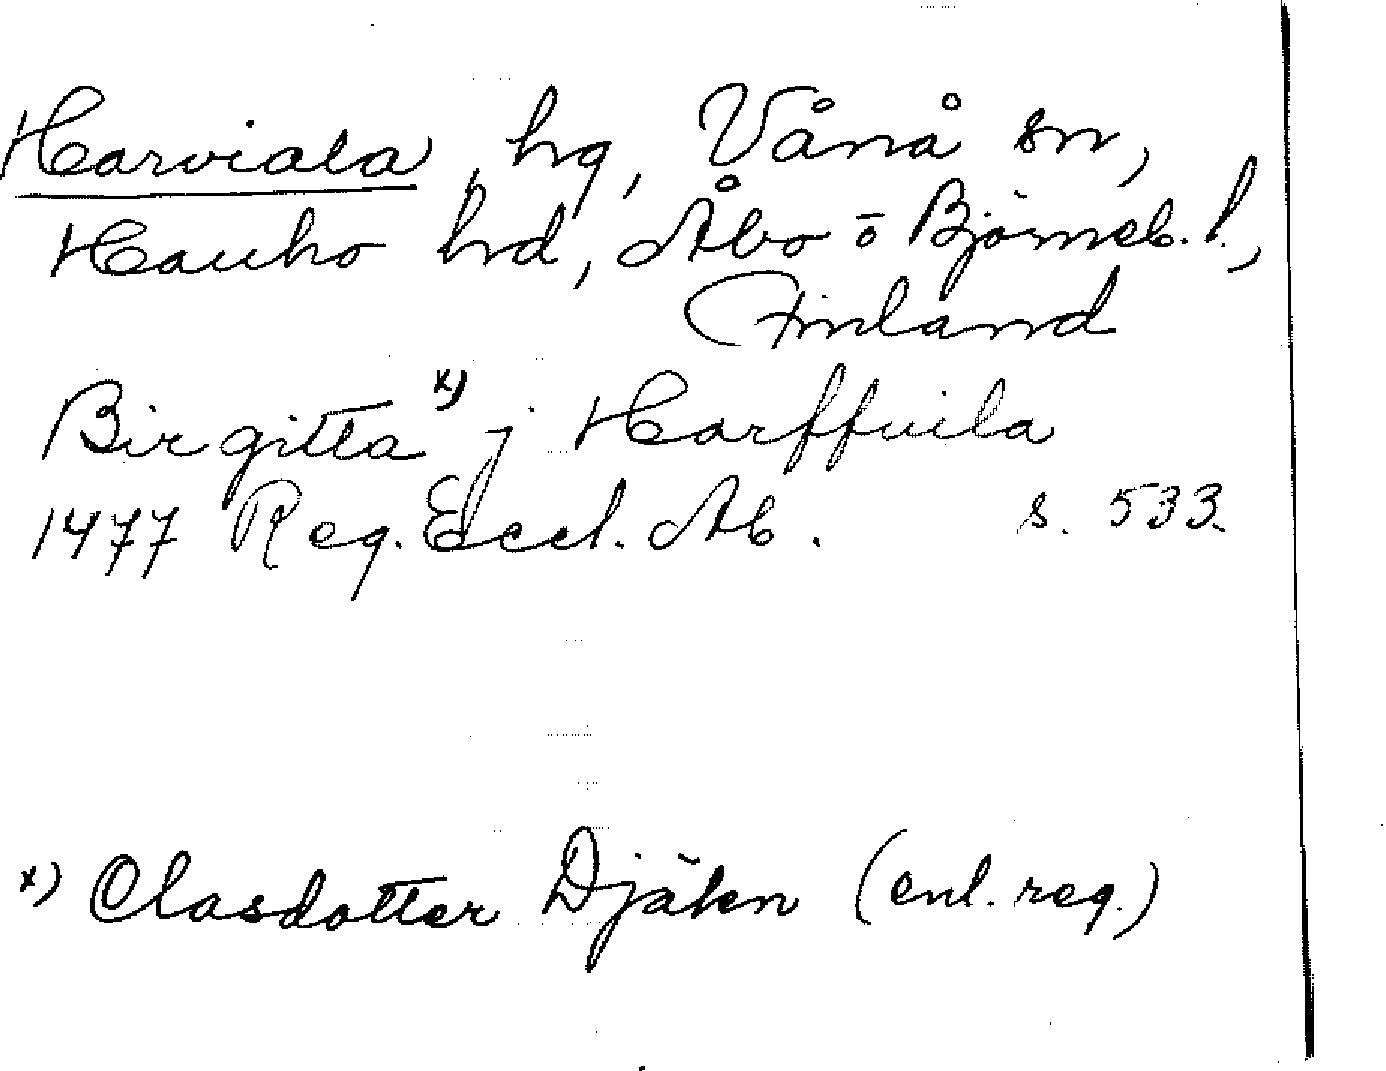 Harviala, hg, Vånå sn,
Hauho hd, Åbo ō Björneb. l.,
Finland
Birgitta x) j Harffuila
1477 Reg. Eccl. Ab. s. 533.
x) Clasdotter Djäkn (enl. reg.)